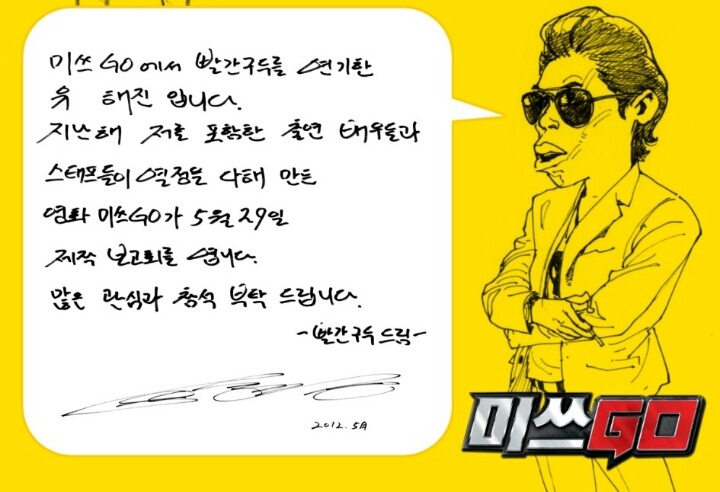 미쓰GO에서 빨간구두를 연기한
유 해진 입니다.
지난해 저를 포함한 출연 배우들과
스태프들이 열정을 다해 만든
영화 미쓰GO가 5월 29일
제작 보고회를 엽니다.
많은 관심과 참석 부탁 드립니다.
-빨간구두 드림-
2012. 5月
미쓰GO